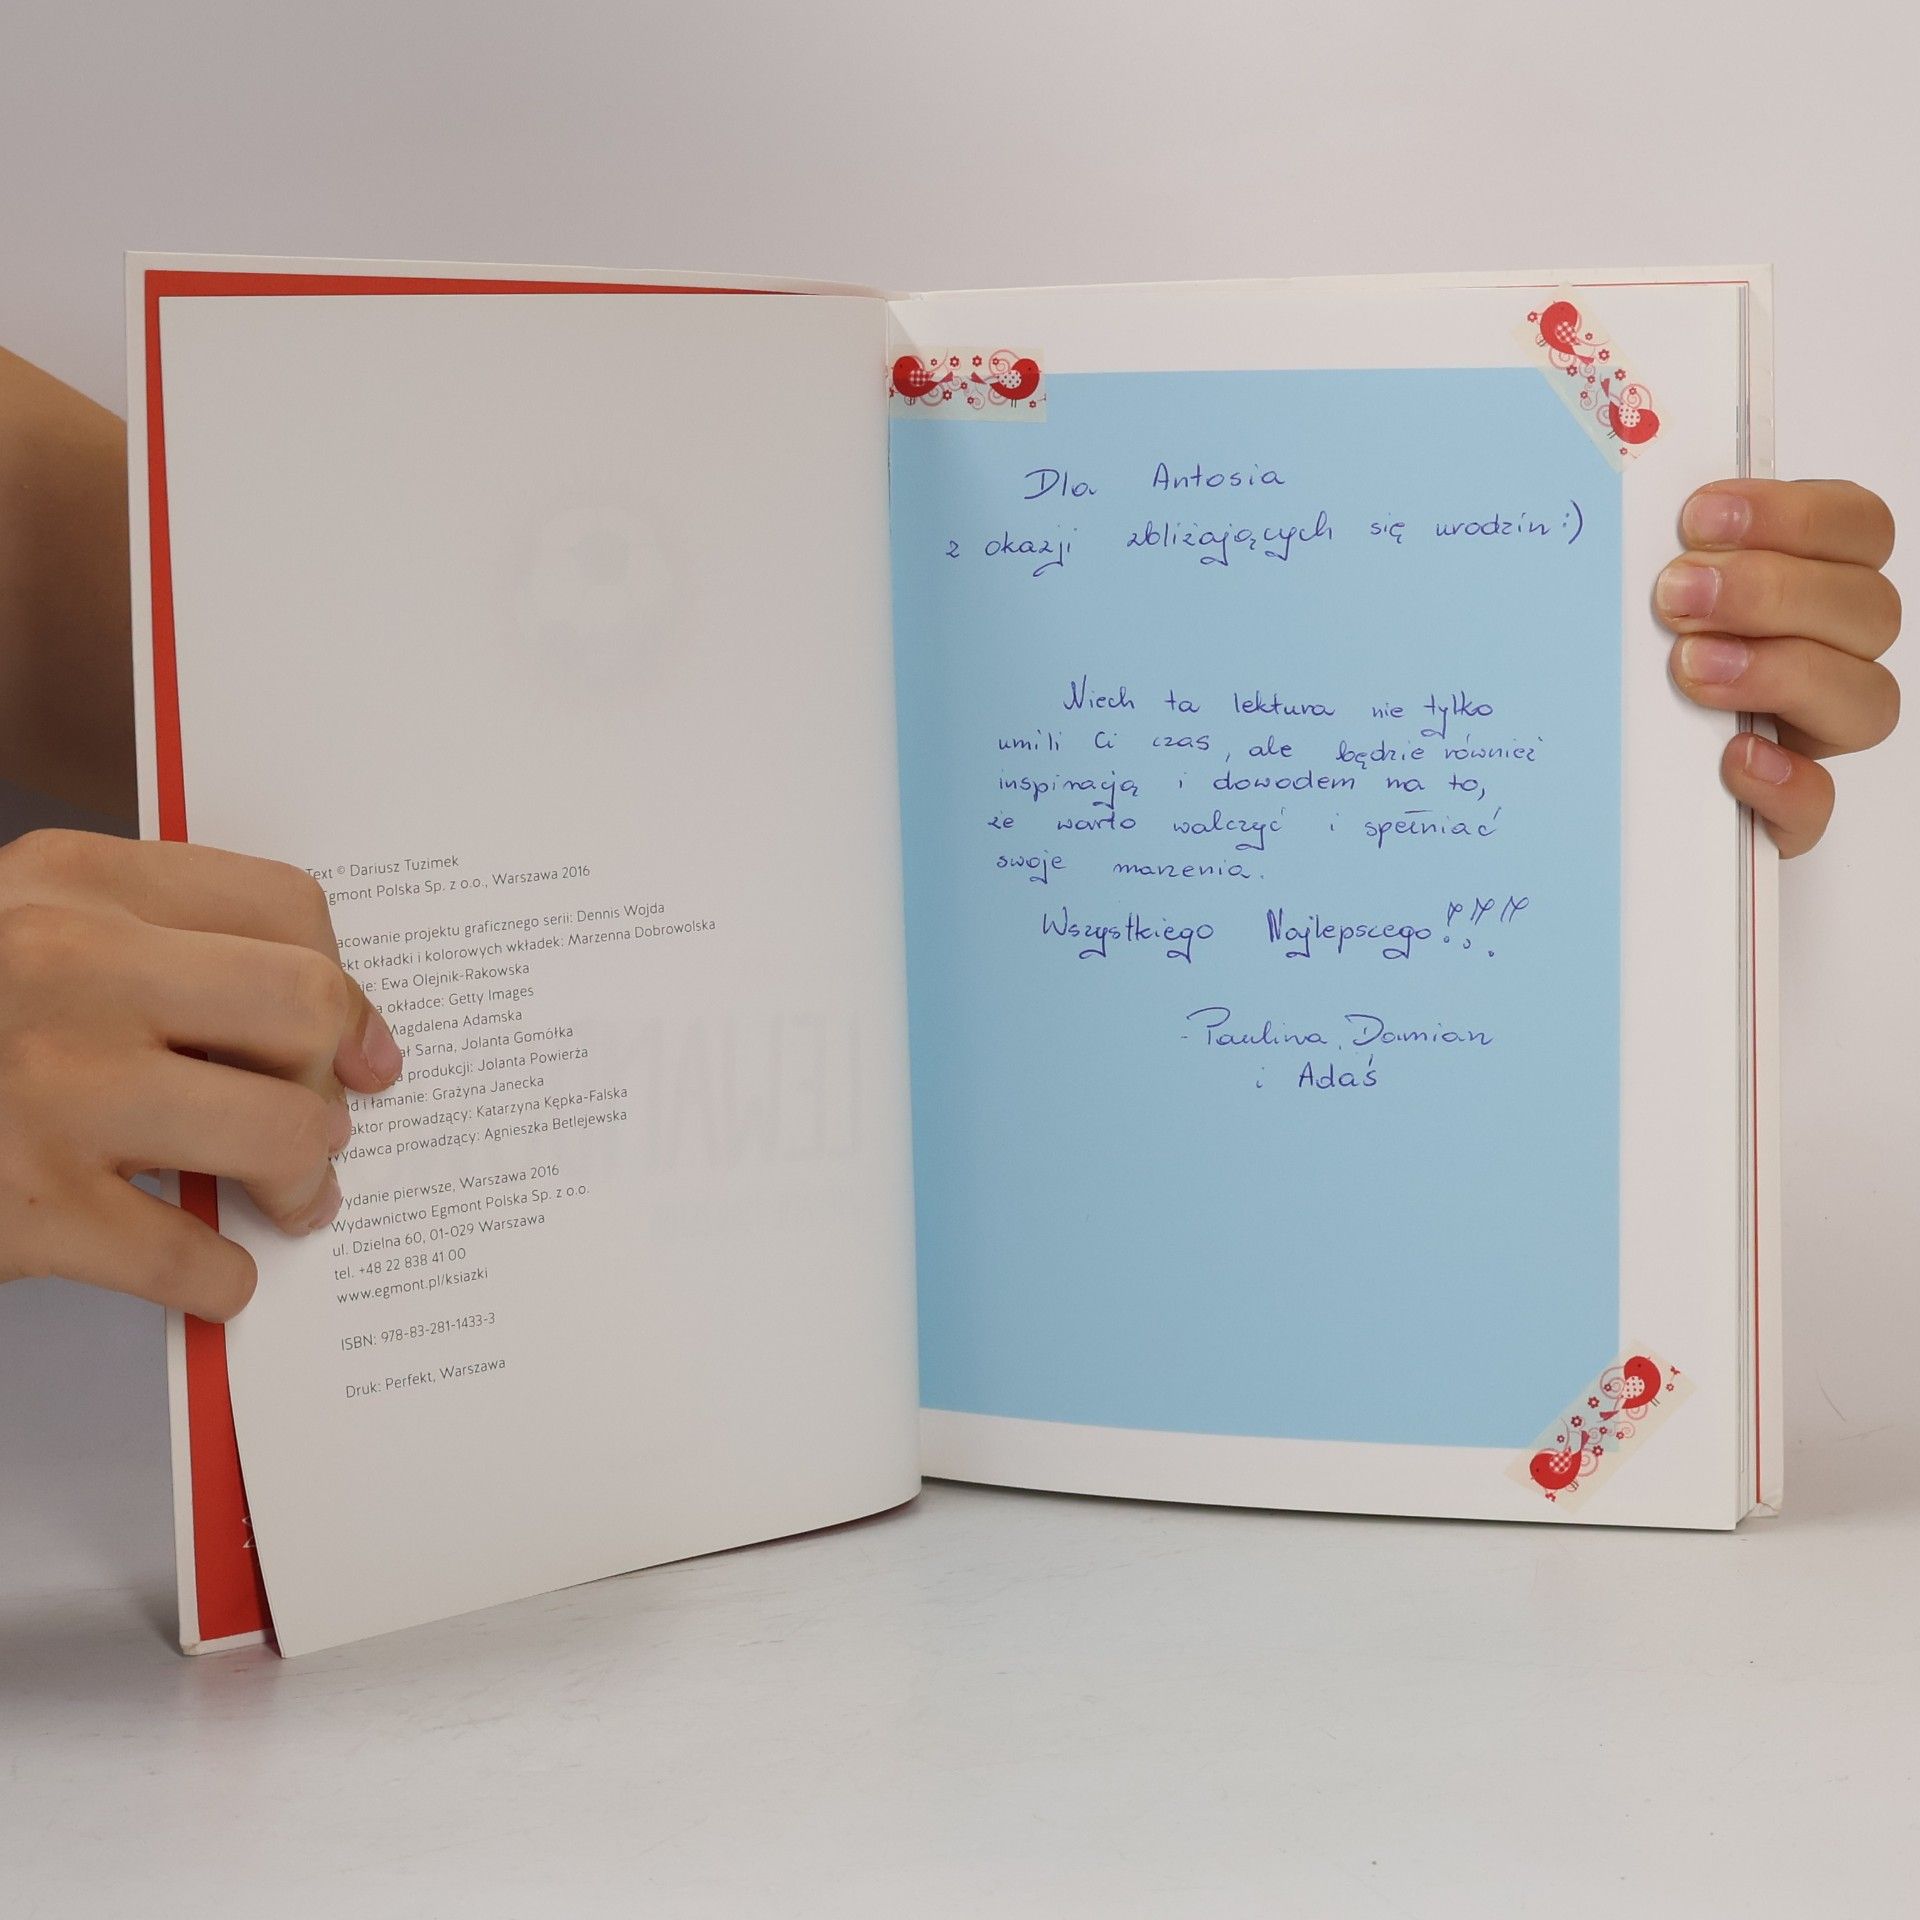 Text © Dariusz Tuzimek
Egmont Polska Sp. z o.o., Warszawa 2016
projektu graficznego serii: Dennis Wojda
okładki i kolorowych wkładek: Marzenna Dobrowolska
Ewa Olejnik-Rakowska
okładce: Getty Images
Magdalena Adamska
Sarna, Jolanta Gomółka
produkcji: Jolanta Powierża
i łamanie: Grażyna Janecka
prowadzący: Katarzyna Kępka-Falska
Wydawca prowadzący: Agnieszka Betlejewska
Wydanie pierwsze, Warszawa 2016
Wydawnictwo Egmont Polska Sp. z o.o.
ul. Dzielna 60, 01-029 Warszawa
tel. +48 22 838 41 00
www.egmont.pl/ksiazki
ISBN: 978-83-281-1433-3
Druk: Perfekt, Warszawa
Dla Antosia
z okazji zbliżających się urodzin :)
Niech ta lektura nie tylko
umili Ci czas, ale będzie również
inspiracją i dowodem na to,
że warto walczyć i spełniać
swoje marzenia.
Wszystkiego Najlepszego!!!
- Paulina, Damian
i Adaś